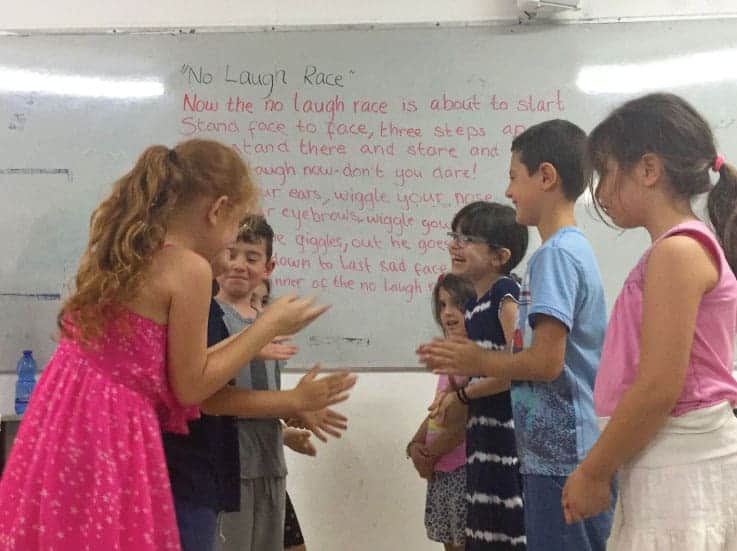 "No Laugh Race"
Now the no laugh race is about to start
Stand face to face, three steps
stand there and stare and
laugh now-don't you dare!
ears, wiggle your nose
eyebrows, wiggle
giggles, out he goes
down to last sad face
of the no laugh